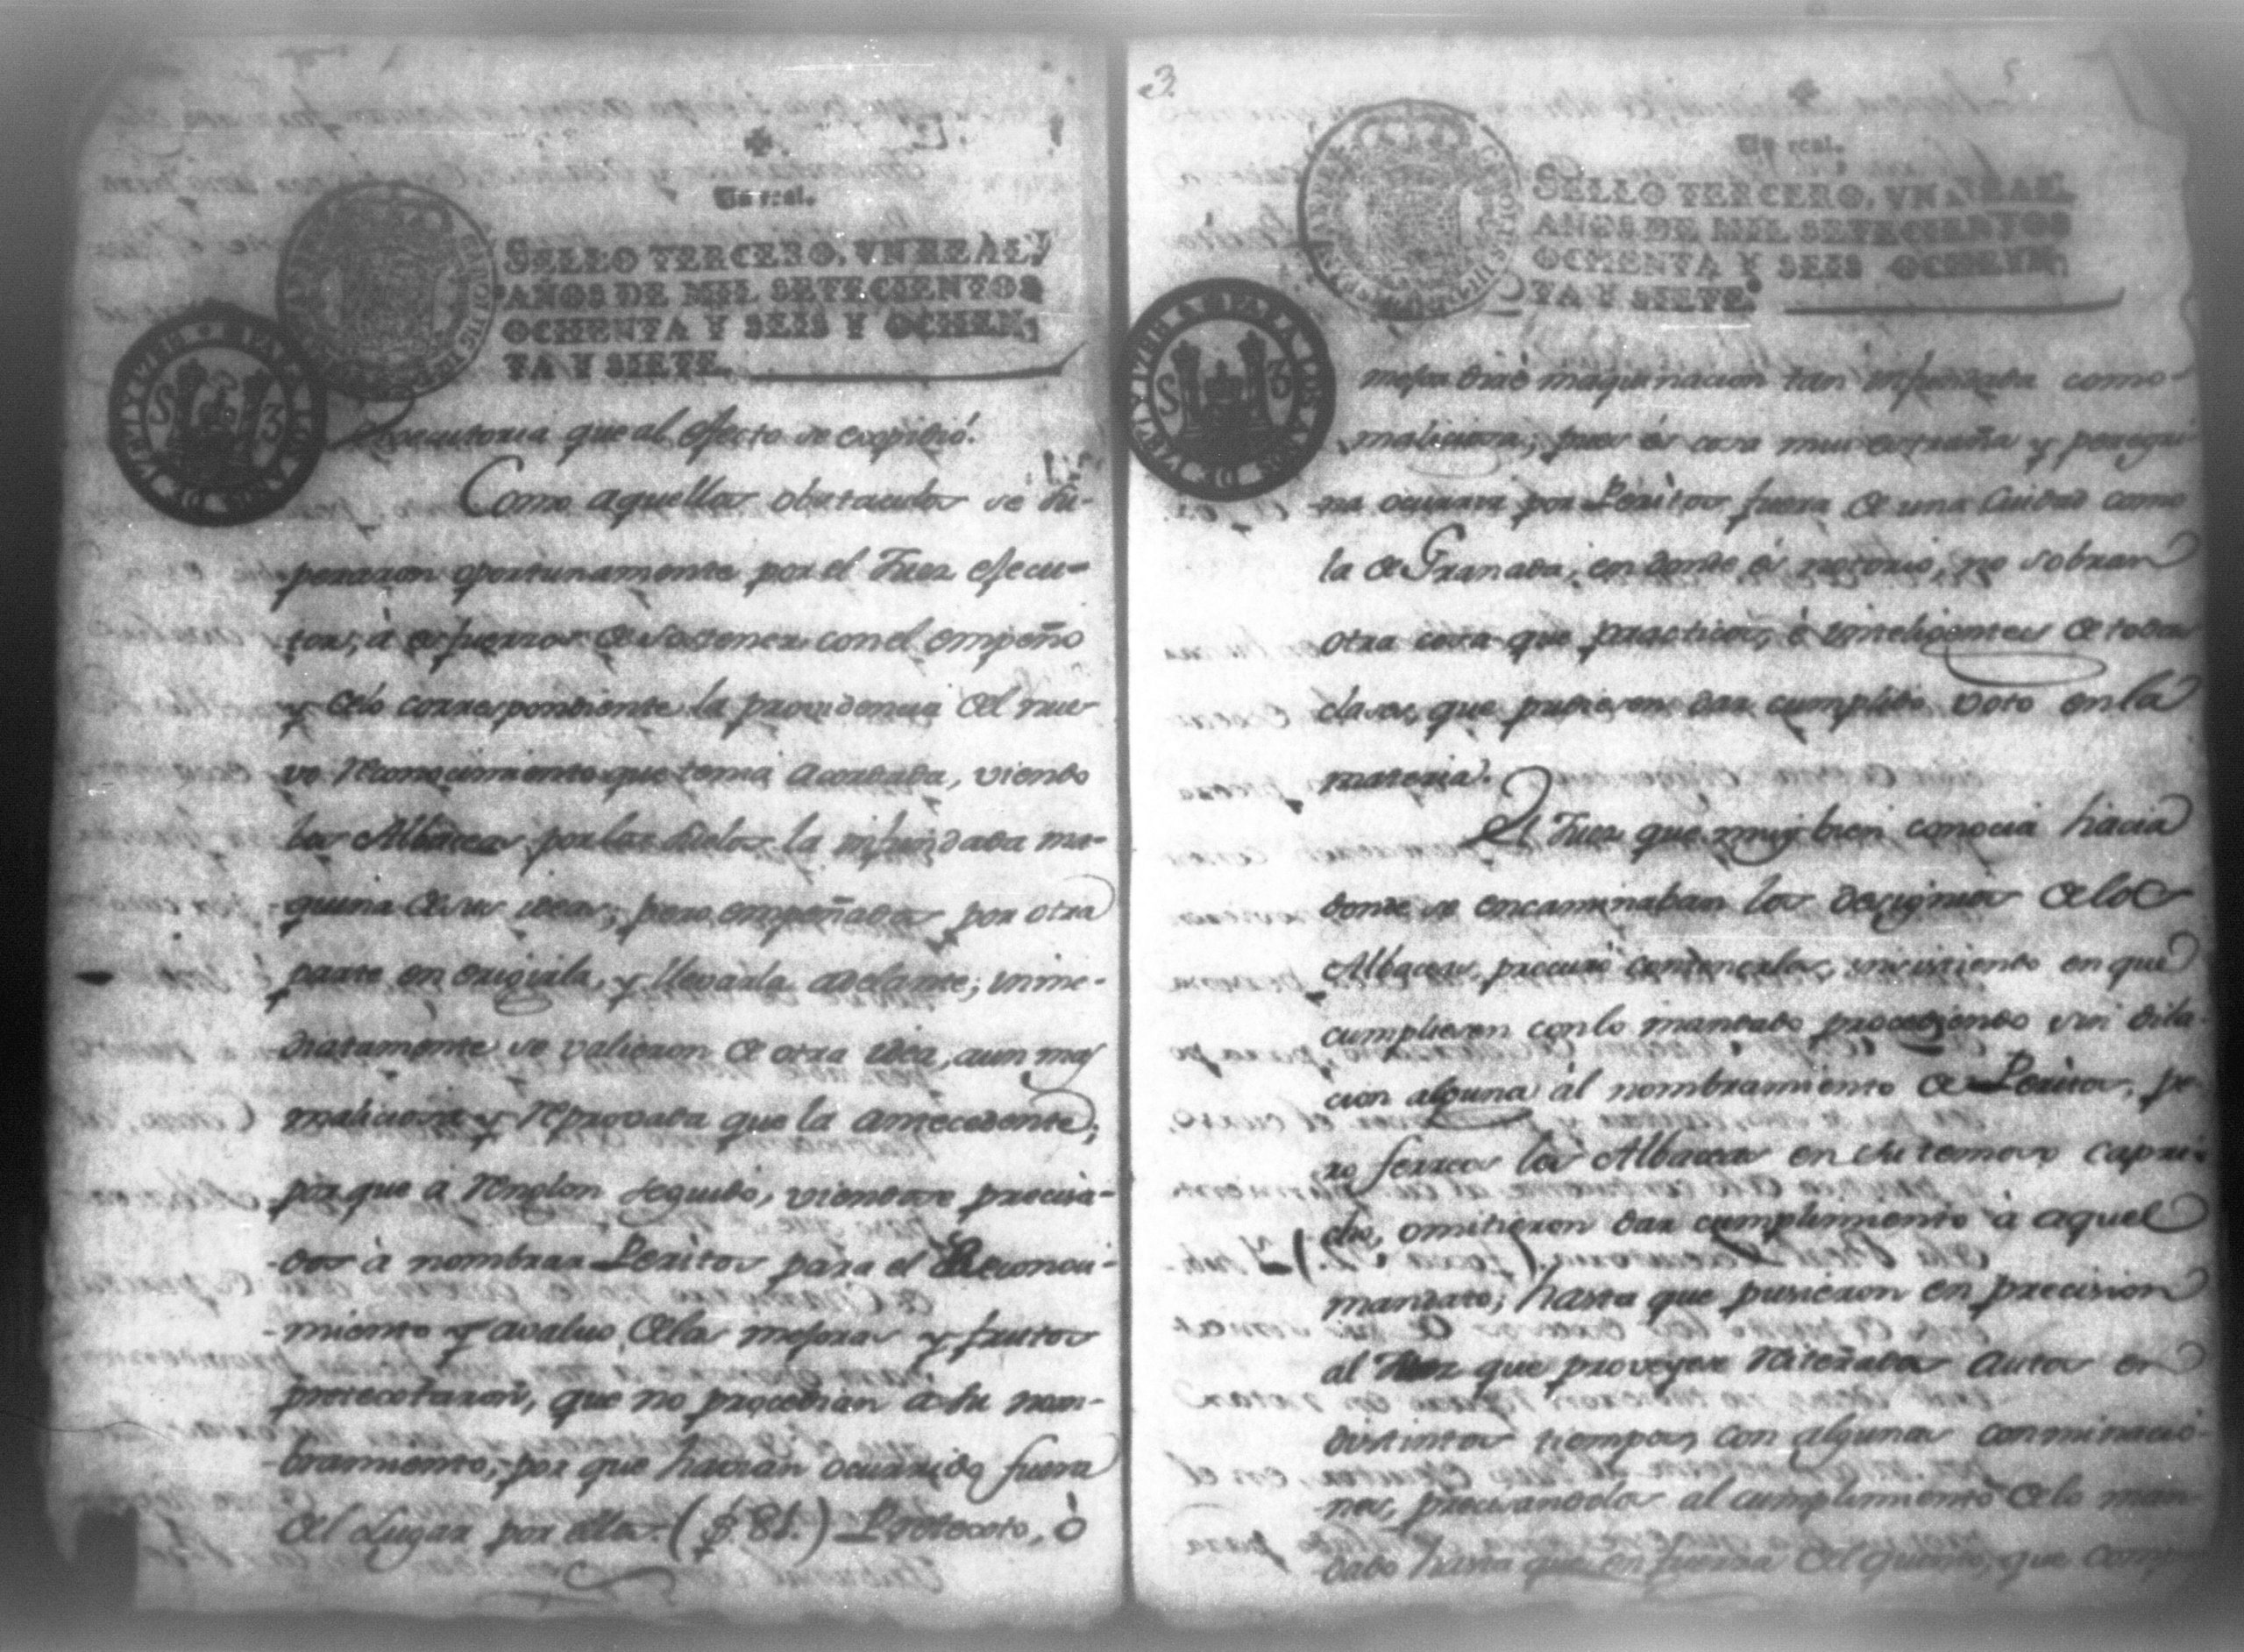 Un real.
SELLO TERCERO, VN REAL,
AÑOS DE MIL SETECIENTOS
OCHENTA Y SEIS Y OCHEN-
TA Y SIETE.
PARA LOS AÑOS DE
S 3
executoria que al efecto se expidió.
Como aquellos obstaculos se su-
peraron oportunamente por el Juez efecu-
tor, à esfuerzos de sostener con el empeño
y celo correspondiente la providencia del nue-
vo Reconocimiento que tenia acordada, viendo
los Albaceas por los suelos la infundada ma-
quina de sus ideas; pero empeñados por otra
parte en erigirla, y llevarla adelante; inme-
diatamente se valieron de otra idea, aun mas
maliciosa y Reprovada que la antecedente;
por que à Renglon seguido, viendose precisa-
dos à nombrar Peritos para el Reconoci-
miento y avaluo de las mejoras y frutos
protextaron, que no procedian a su nom-
bramiento, por que havian ocurrido fuera
del Lugar por ellos. (f. 81.) Protexto, ò
3.
Un real.
SELLO TERCERO, VN REAL,
AÑOS DE MIL SETECIENTOS
OCHENTA Y SEIS OCHEN-
TA Y SIETE.
PARA LOS AÑOS DE
S 3
mejor diré maquinacion tan infundada como
maliciosa; pues es cosa mui estraña y peregri-
na ocurrir por Peritos fuera de una Ciudad como
la de Granada, en donde és notorio, no sobran
otra cosa que practicos, è inteligentes de todas
clases, que pudiesen dar cumplido voto en la
materia.
El Juez que muy bien conocia hacia
donde se encaminaban los designios de los
Albaceas, procuró contenerlos, insistiendo en que
cumpliesen con lo mandado procediendo sin dila-
cion alguna àl nombramiento de Peritos, pe-
ro ferreos los Albaceas en su temoso capri-
cho, omitieron dar cumplimiento à aquel
mandato; hasta que pusieron en precision
al Juez que proveyese Riterados Autos en
distintos tiempos, con algunas conminacio-
nes, precisandolos al cumplimiento de lo man-
dado hasta que en fuerza del quinto, que